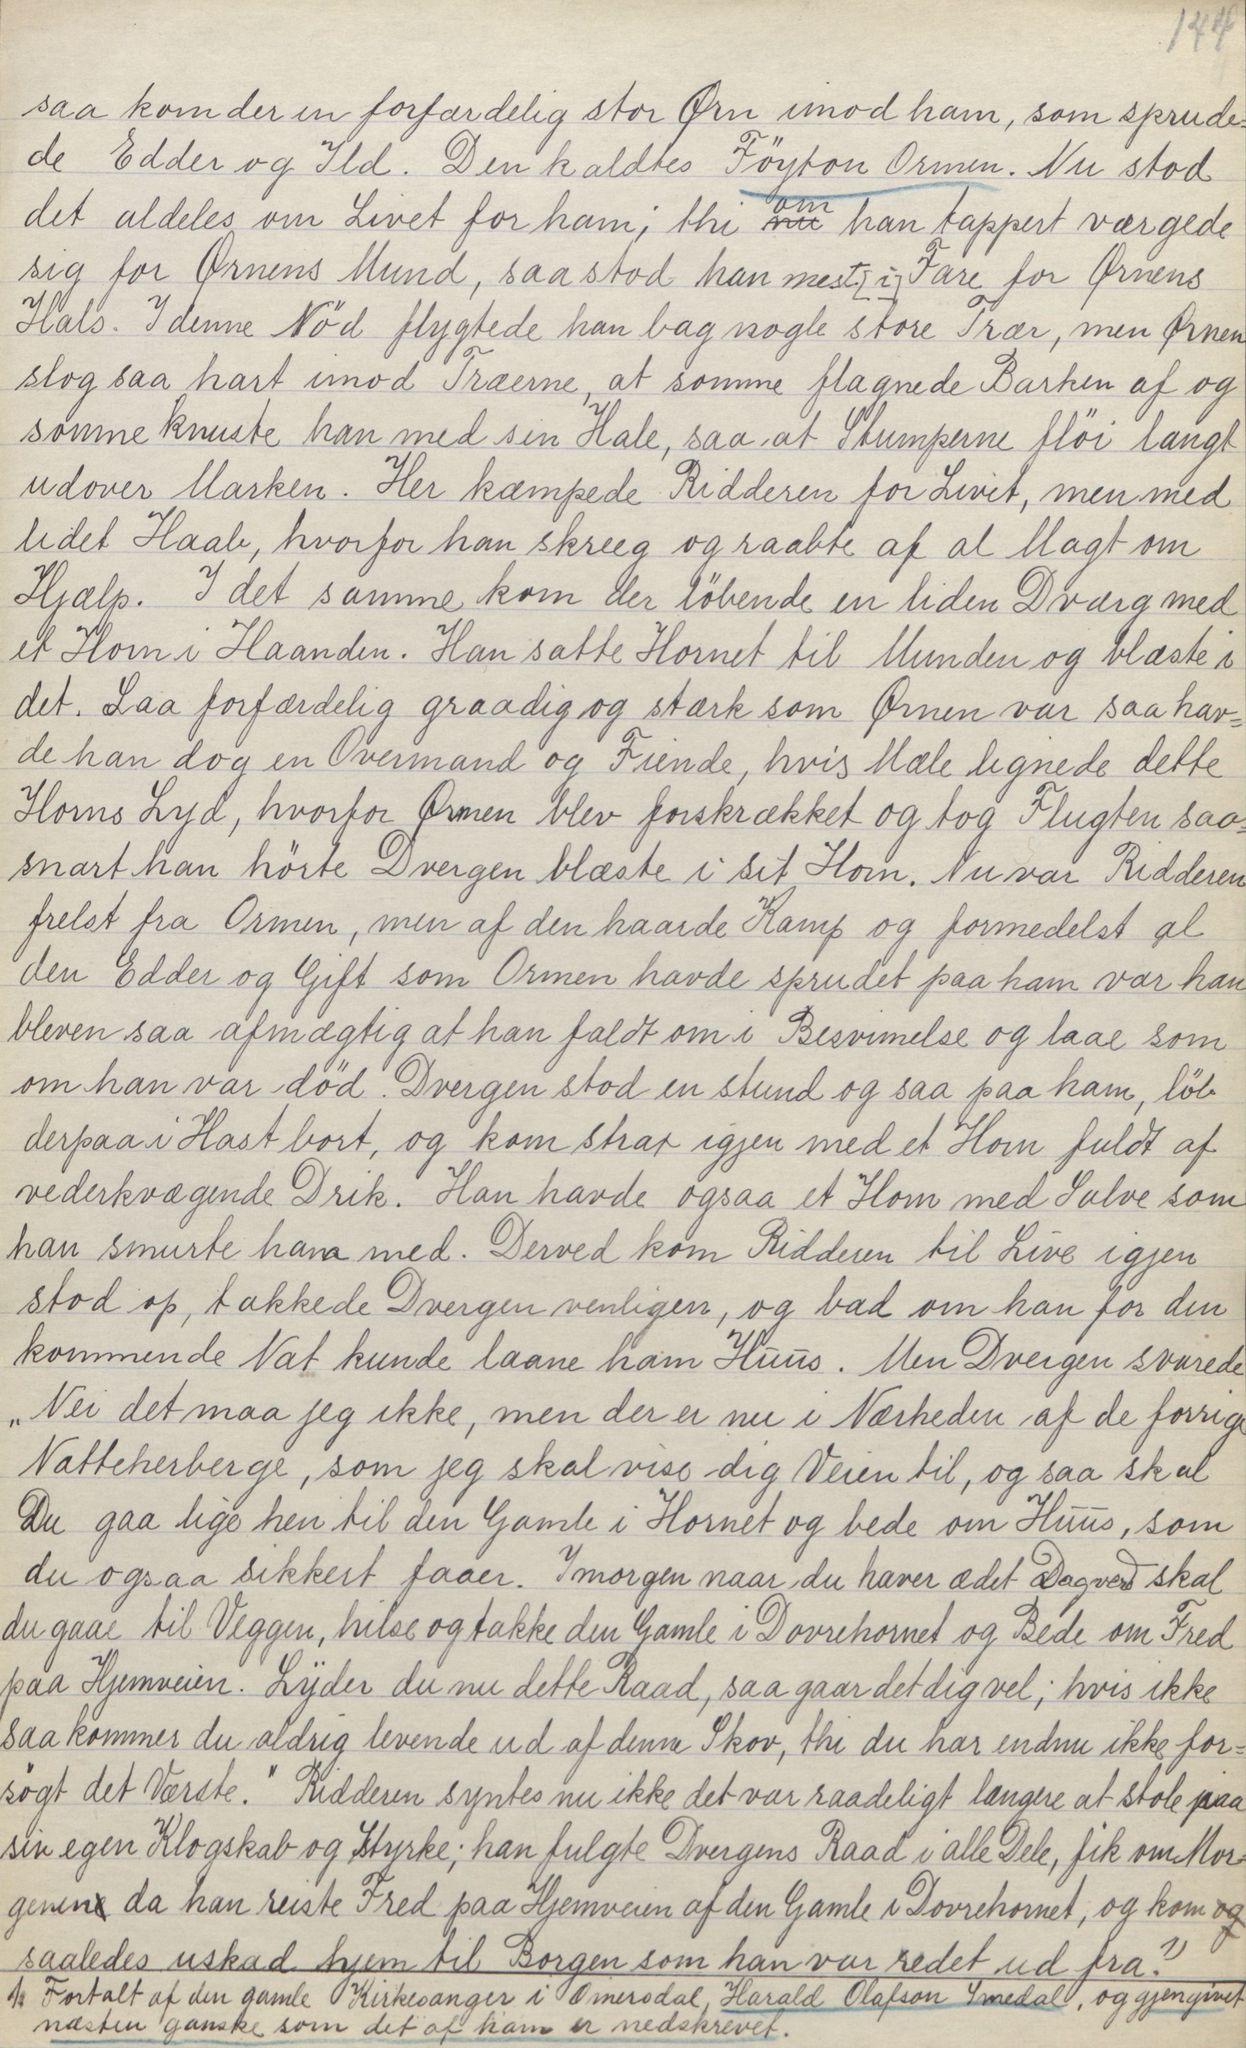 144
saa kom der en forfærdelig stor Ørn imod ham, som sprude=
de Edder og Ild. Den kaldtes Föyton Ormen. Nu stod
det aldeles om Livet for ham; thi om han tappert værgede
sig for Ørnens Mund, saa stod han mest [i] Fare for Ørnens
Hals. I denne Nöd flygtede han bag nogle store Trær, men Ørnen
slog saa hart imod Træerne, at somme flagnede Barken af og
somme knuste han med sin Hale, saa at Stumperne flöi langt
udover Marken. Her kæmpede Ridderen for Livet, men med
lidet Haab, hvorfor han skreeg og raabte af al Magt om
Hjælp. I det samme kom der löbende en liden Dværg med
et Horn i Haanden. Han satte Hornet til Munden og blæste i
det. Saa forfærdelig graadig og stærk som Ørnen var saa hav=
de han dog en Overmand og Fiende, hvis Mæle lignede dette
Horns Lyd, hvorfor Ørnen blev forskrækket og tog Flugten saa=
snart han hörte Dvergen blæste i sit Horn. Nu var Ridderen
frelst fra Ormen, men af den haarde Kamp og formedelst al
den Edder og Gift som Ormen havde sprudet paa ham var han
bleven saa afmægtig at han faldt om i Besvimelse og laae som
om han var död. Dvergen stod en stund og saa paa ham, löb
derpaa i Hast bort, og kom strax igjen med et Horn fuldt af
vederkvægende Drik. Han havde ogsaa et Horn med Salve som
han smurte ham med. Derved kom Ridderen til Live igjen
stod op, takkede Dvergen venligen, og bad om han for den
kommende Nat kunde laane ham Huus. Men Dvergen svarede
„Nei det maa jeg ikke, men der er nu i Nærheden af de forrige
Natteherberge, som jeg skal vise dig Veien til, og saa skal
Du gaa lige hen til den Gamle i Hornet og bede om Huus, som
du ogsaa sikkert faaer. Imorgen naar du haver ædet Dagverd skal
du gaae til Veggen, hilse og takke den Gamle i Dovrehornet og Bede om Fred
paa Hjemveien. Lyder du nu dette Raad, saa gaar det dig vel; hvis ikke
saa kommer du aldrig levende ud af denne Skov, thi du har endnu ikke for=
sögt det Værste." Ridderen syntes nu ikke det var raadeligt længere at stole paa
sin egen Klogskab og Styrke; han fulgte Dvergens Raad i alle Dele, fik om Mor=
genen da han reiste Fred paa Hjemveien af den Gamle i Dovrehornet, og kom og
saaledes uskad hjem til Borgen som han var redet ud fra. 1)
1. Fortalt af den gamle Kirkesanger i Omersdal, Harald Olafson Smedal, og gjengivet
næsten ganske som det af ham er nedskrevet.